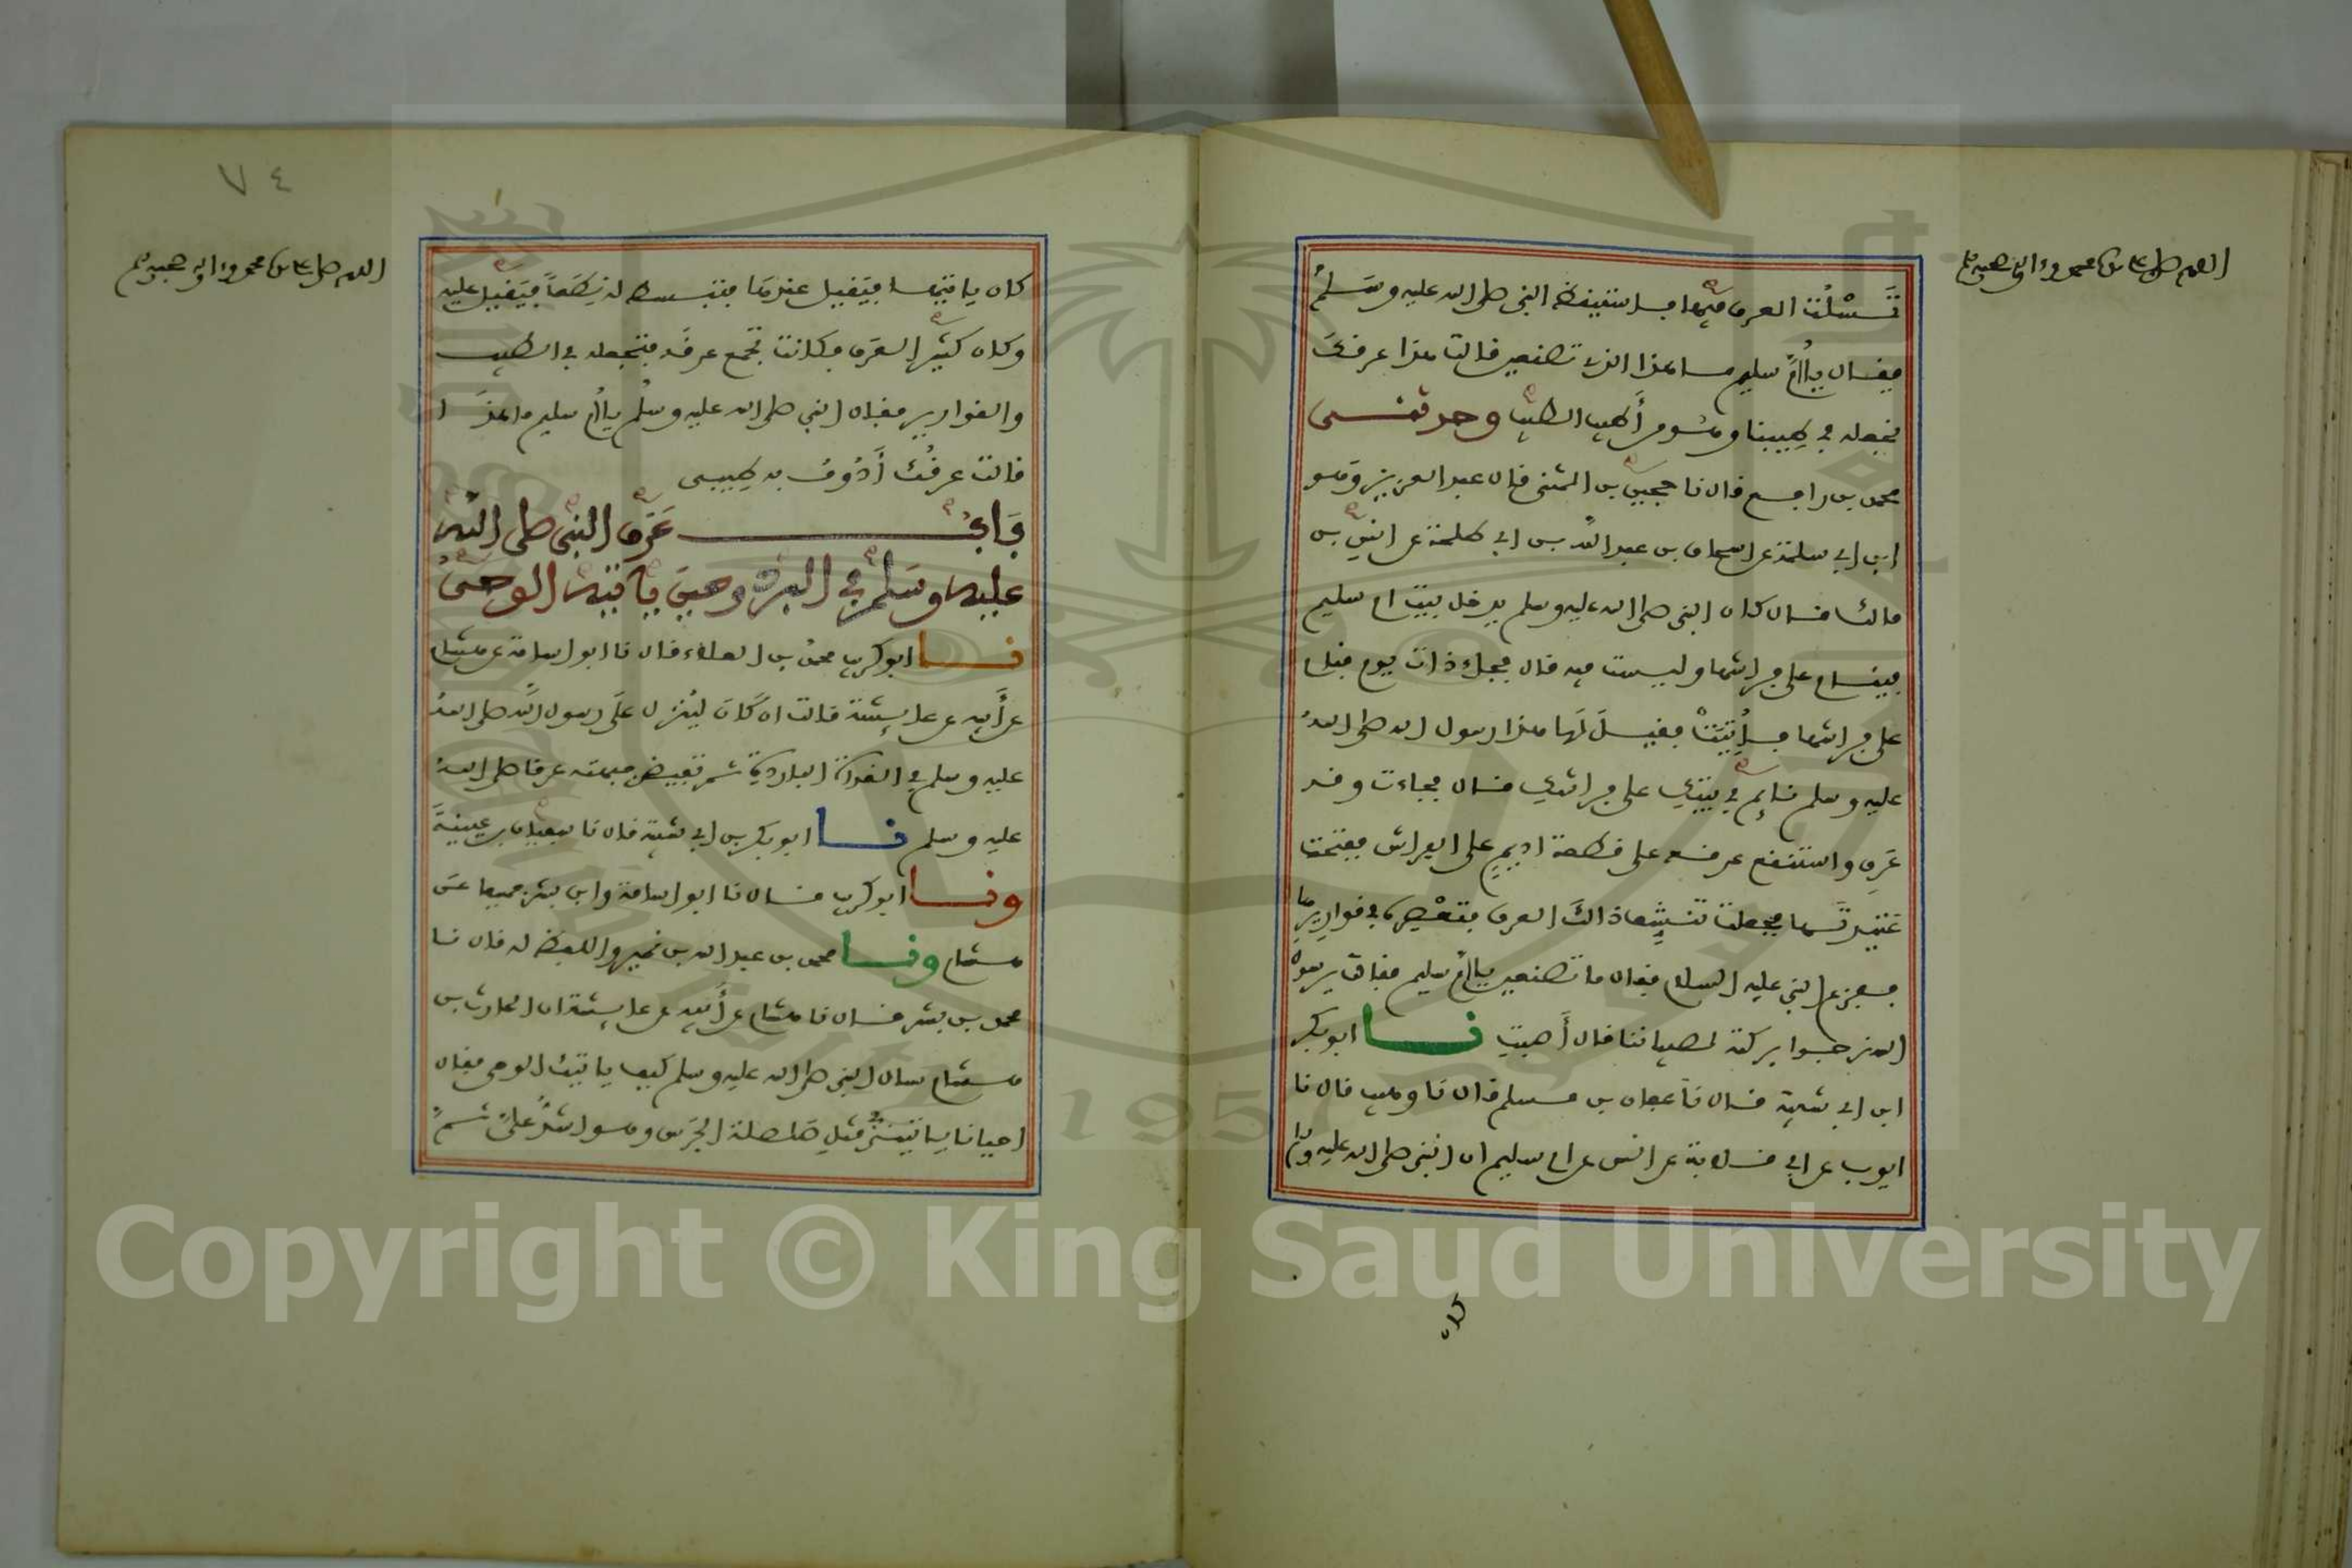 اللهم صل على سيدنا محمد وءاله وصحبه وسلم
تَسْلُتُ العرق فيها فاستيقظ النبي صلى الله عليه وسلم
فقال يا أم سليم ما هذا الذي تصنعين قالت هذا عرقك
نجعله في طيبنا وهو من أطيب الطيب وحدثنى
محمد بن رافع قال نا حجين بن المثنى قال نا عبد العزيز وهو
ابن ابي سلمة عن اسحاق بن عبد الله بن ابي طلحة عن انس بن
مالك قال كان النبي صلى الله عليه وسلم يدخل بيت ام سليم
فينام على فراشها وليست فيه قال فجاء ذات يوم فنام
على فراشها فأتيت فقيل لها هذا رسول الله صلى الله
عليه وسلم نائم في بيتك على فراشك قال فجاءت وقد
عرق واستنقع عرقه على قطعة اديم على الفراش ففتحت
عتيدتها فجعلت تنشف ذالك العرق فتعصره في قواريرها
ففزع النبي عليه السلام فقال ما تصنعين يا أم سليم فقالت يرسول
الله نرجوا بركته لصبياننا قال أصبت نا ابو بكر
ابن ابي شيبة قال نا عفان بن مسلم قال نا وهيب قال نا
ايوب عن ابي قلابة عن انس عن ام سليم ان النبي صلى الله عليه وسلم
كان
٧٤
اللهم صل على سيدنا محمد وءاله وصحبه وسلم
كان ياتيها فيقيل عندها فتبسط له نطعا فيقيل عليه
وكان كثير العرق فكانت تجمع عرقه فتجعله في الطيب
والقوارير فقال النبي صلى الله عليه وسلم يا أم سليم ما هذا
قالت عرقك أذوف به طيبى
باب عرق النبي صلى الله
عليه وسلم في البرد وحين ياتيه الوحى
نا ابو كريب محمد بن العلاء قال نا ابو اسامة عن هشام
عن أبيه عن عائشة قالت ان كان لينزل على رسول الله صلى الله
عليه وسلم في الغداة الباردة ثم تفيض جبهته عرقا صلى الله
عليه وسلم نا ابو بكر بن ابي شيبة قال نا سفيان بن عيينة
ونا ابو كريب قال نا ابو اسامة وابن بشر جميعا عن
هشام ونا محمد بن عبد الله بن نمير واللفظ له قال نا
محمد بن بشر قال نا هشام عن أبيه عن عائشة ان الحارث بن
هشام سال النبي صلى الله عليه وسلم كيف ياتيك الوحى فقال
احيانا ياتينى مثل صلصلة الجرس وهو اشده على ثم
Copyright © King Saud University
1957